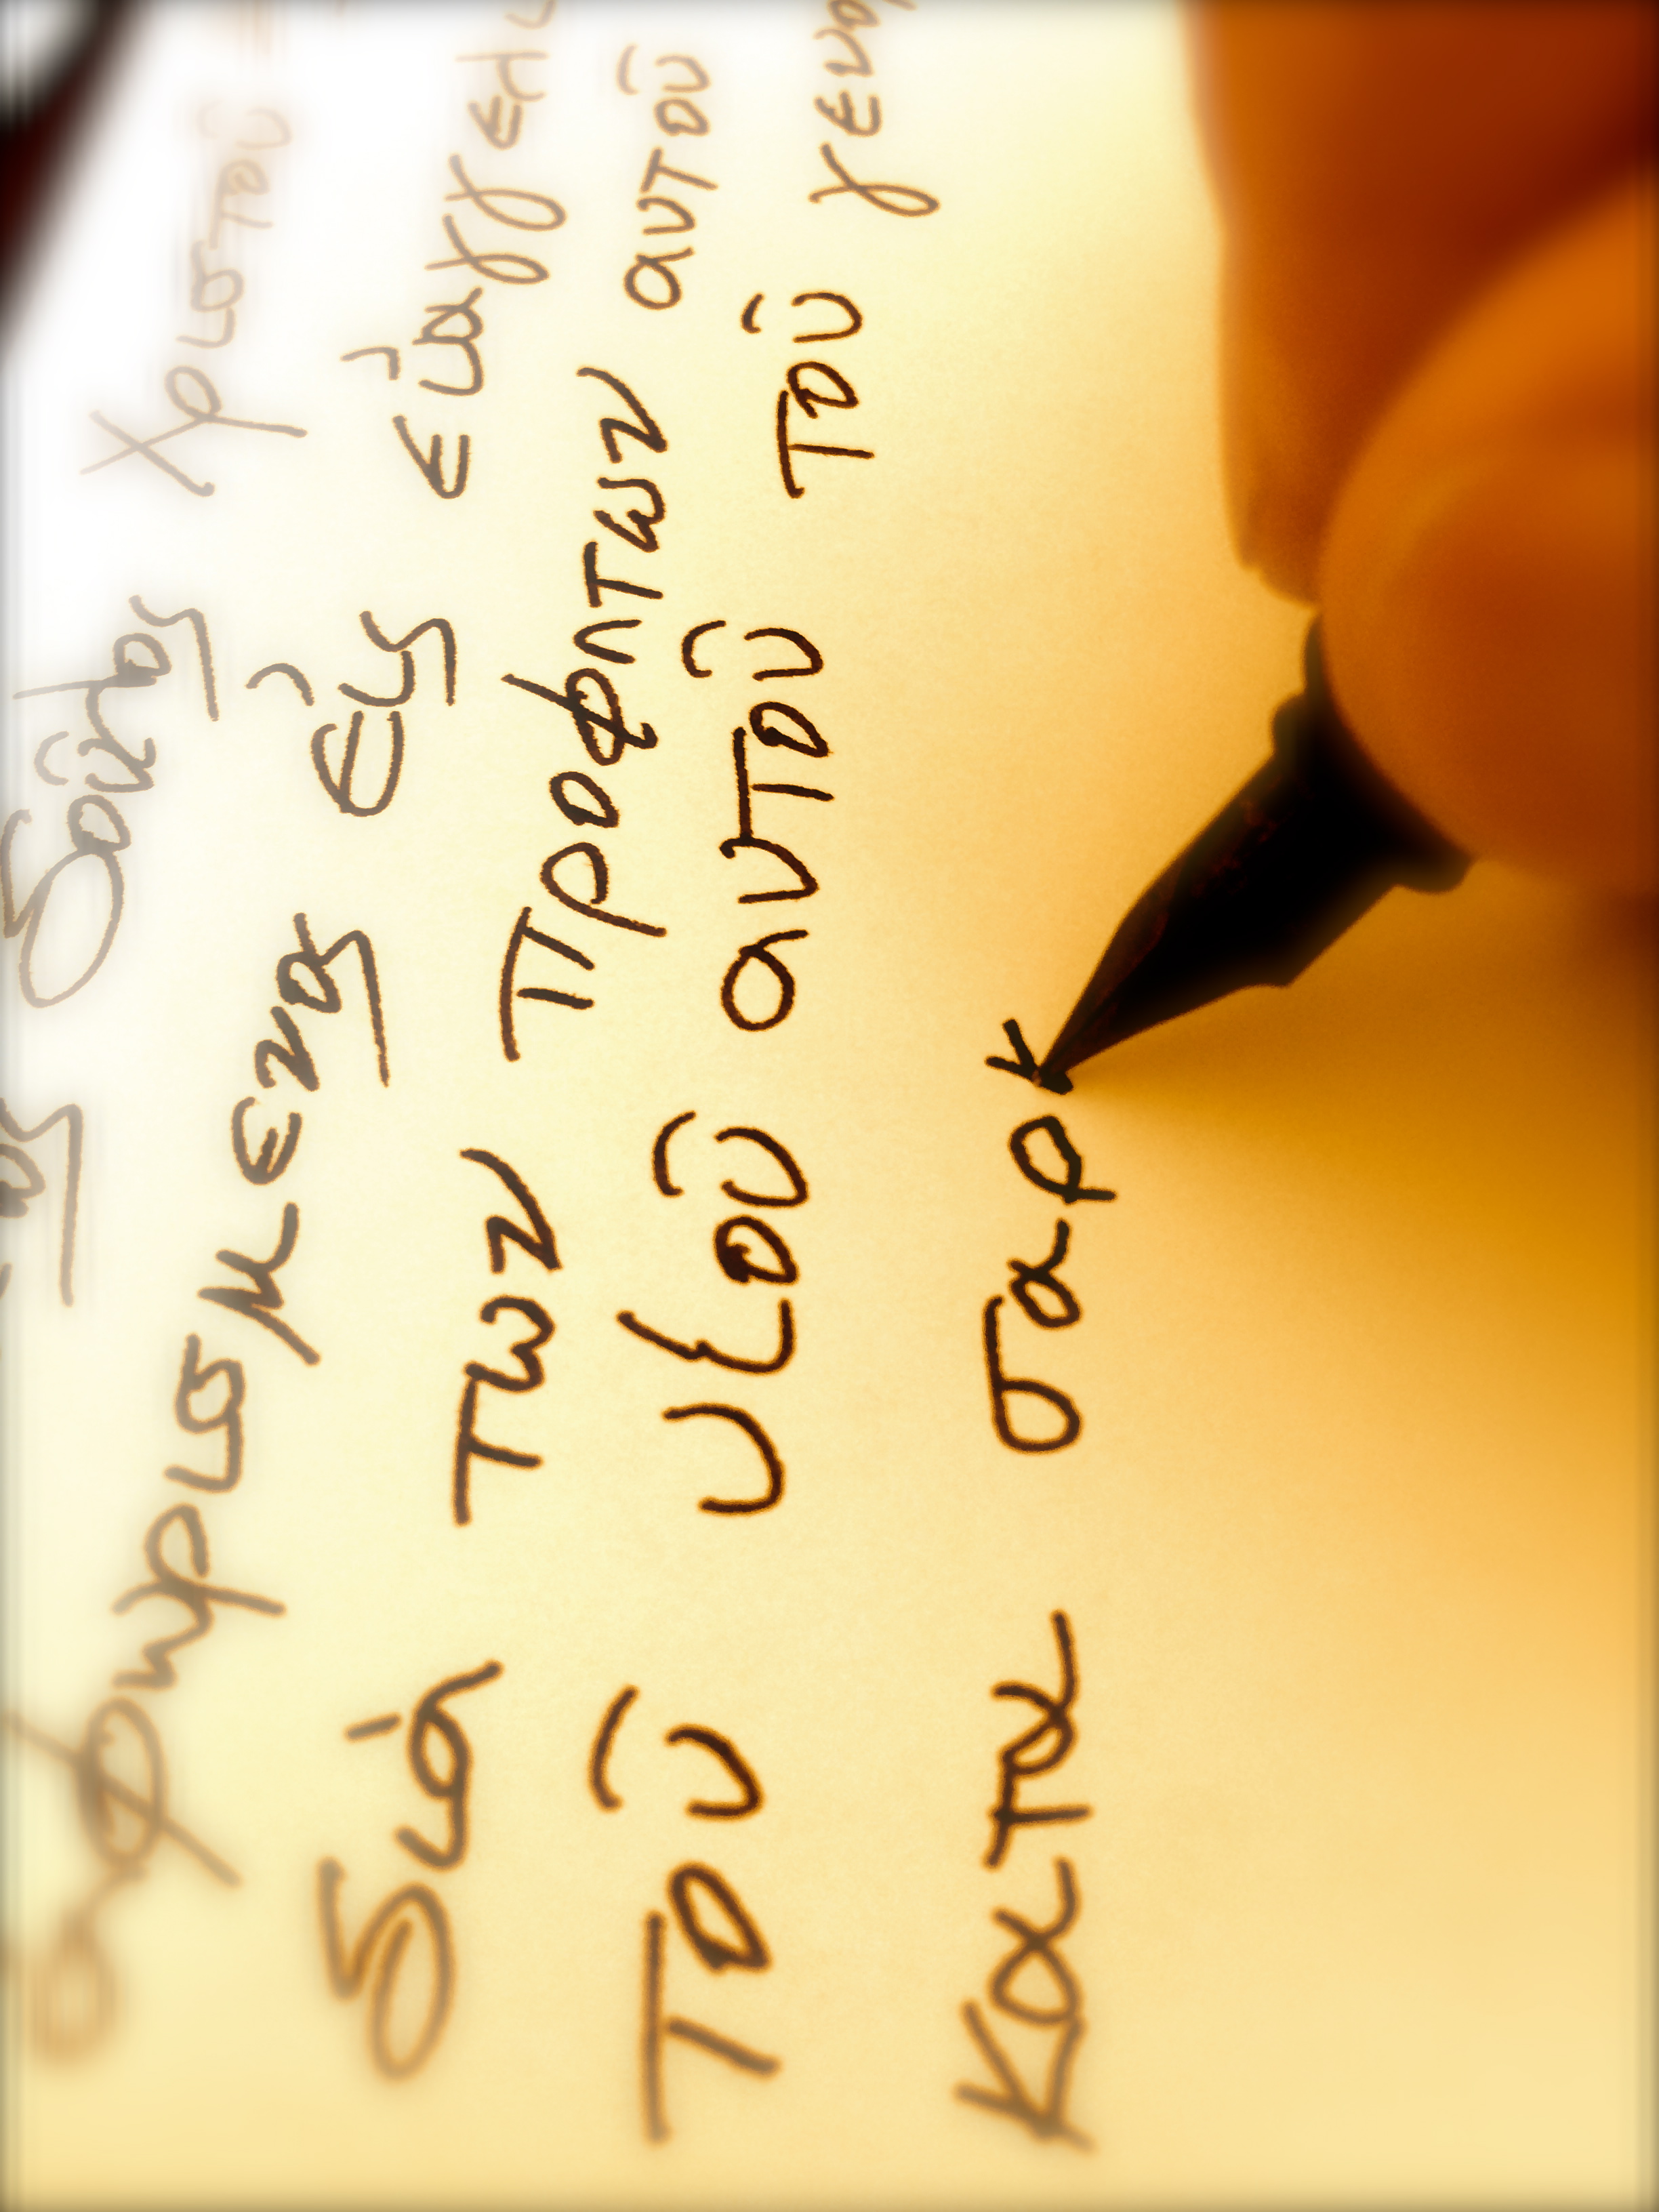 δοῦλος Χριστοῦ
αφωρισμενος εἰς εὐαγγελι
διά των προφητων αυτοῦ
τοῦ υἱοῦ αυτοῦ τοῦ γενο
Κατα σαρκ